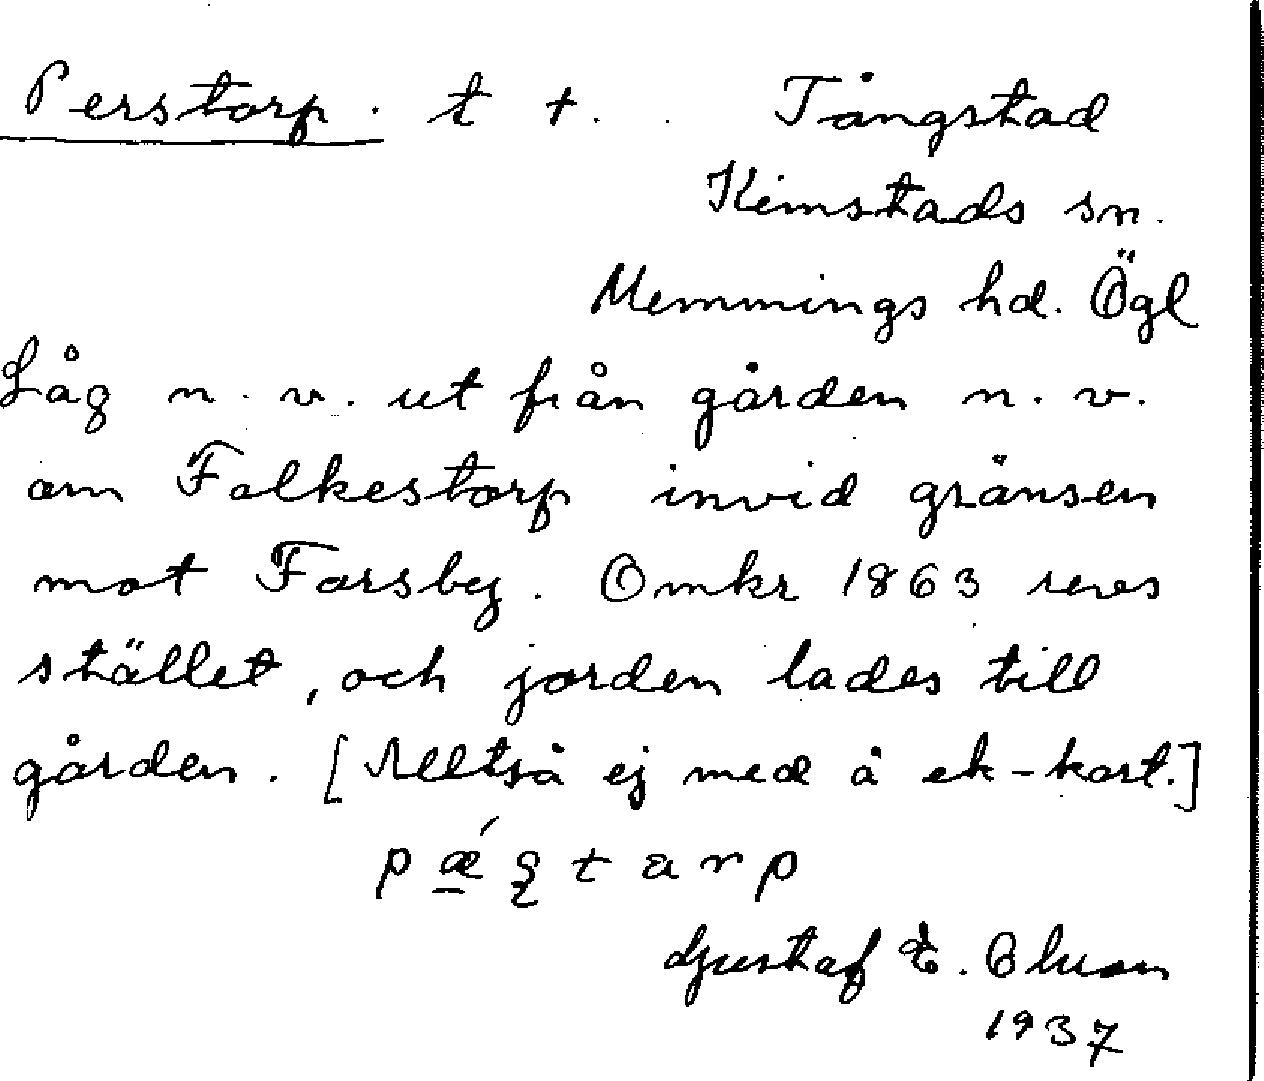 Perstorp. t +. Tångstad
Kimstads sn.
Memmings hd. Ögl
Låg n. v. ut från gården n. v.
om Falkestorp invid gränsen
mot Forsby. Omkr 1863 revs
stället, och jorden lades till
gården. [Alltså ej med å ek-kart.]
Gustaf E.
1937